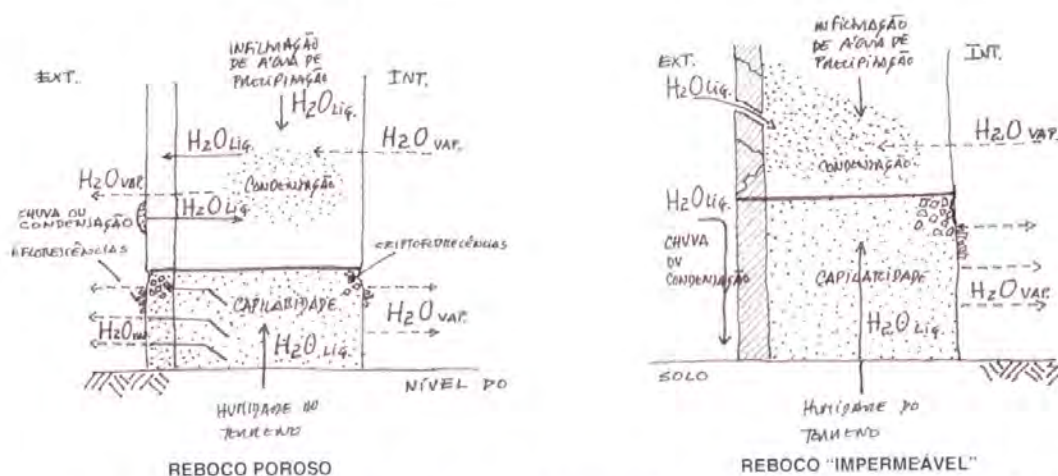 INFILTRAÇÃO
DE ÁGUA DE
PRECIPITAÇÃO
EXT.
INT.
H2O LIQ.
H2O LIQ.
H2O VAP.
H2O VAP.
CONDENSAÇÃO
H2O LIQ
CHUVA OU
CONDENSAÇÃO
EFLORESCÊNCIAS
CRIPTOFLORESCÊNCIAS
CAPILARIDADE
H2O VAP.
H2O LIQ.
NÍVEL DO
HUMIDADE DO
TERRENO
REBOCO POROSO
INFILTRAÇÃO
DE ÁGUA DE
PRECIPITAÇÃO
EXT.
INT.
H2O LIQ.
H2O VAP.
CONDENSAÇÃO
H2O LIQ.
CHUVA
OU
CONDENSAÇÃO
CAPILARIDADE
H2O VAP.
H2O LIQ.
SOLO
HUMIDADE DO
TERRENO
REBOCO "IMPERMEÁVEL"